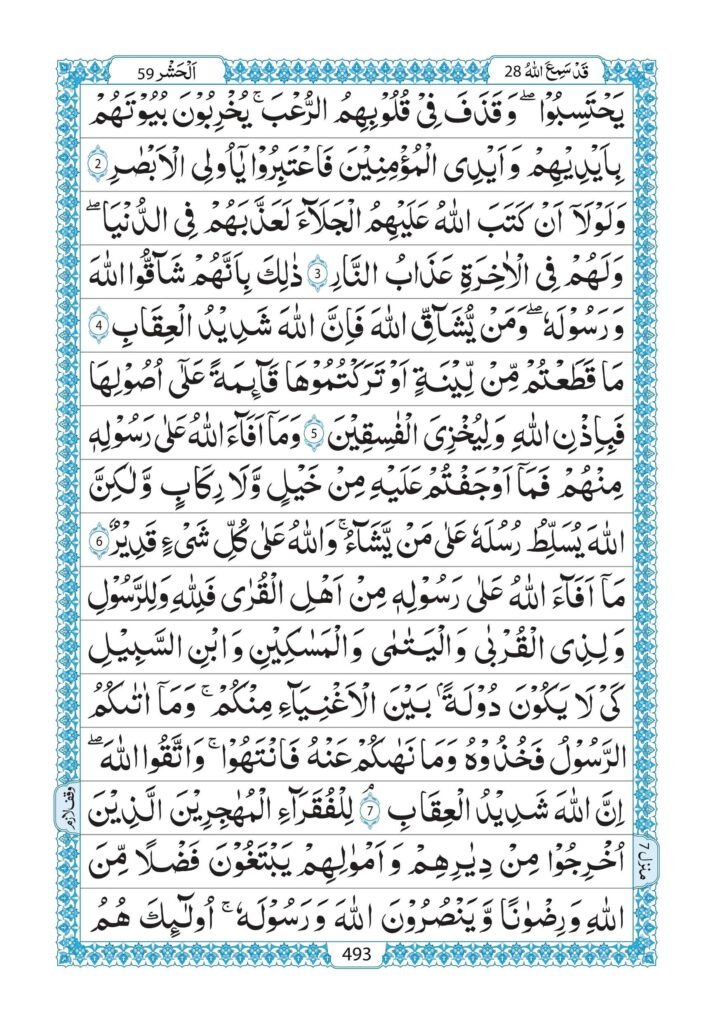 اَلْحَشْر 59
قَدْ سَمِعَ اللهُ 28
يَحْتَسِبُوْا ۖ وَقَذَفَ فِیْ قُلُوْبِهِمُ الرُّعْبَ ۚ يُخْرِبُوْنَ بُيُوْتَهُمْ
بِاَيْدِيْهِمْ وَاَيْدِی الْمُؤْمِنِيْنَ فَاعْتَبِرُوْا يٰۤاُولِی الْاَبْصٰرِ 2
وَلَوْلَاۤ اَنْ كَتَبَ اللهُ عَلَيْهِمُ الْجَلَآءَ لَعَذَّبَهُمْ فِی الدُّنْيَا ۖ
وَلَهُمْ فِی الْاٰخِرَةِ عَذَابُ النَّارِ 3 ذٰلِكَ بِاَنَّهُمْ شَآقُّوا اللهَ
وَرَسُوْلَهٗ ۖ وَمَنْ يُّشَآقِّ اللهَ فَاِنَّ اللهَ شَدِيْدُ الْعِقَابِ 4
مَا قَطَعْتُمْ مِّنْ لِّيْنَةٍ اَوْ تَرَكْتُمُوْهَا قَآئِمَةً عَلٰۤی اُصُوْلِهَا
فَبِاِذْنِ اللهِ وَلِيُخْزِیَ الْفٰسِقِيْنَ 5 وَمَاۤ اَفَآءَ اللهُ عَلٰی رَسُوْلِهٖ
مِنْهُمْ فَمَاۤ اَوْجَفْتُمْ عَلَيْهِ مِنْ خَيْلٍ وَّلَا رِكَابٍ وَّلٰكِنَّ
اللهَ يُسَلِّطُ رُسُلَهٗ عَلٰی مَنْ يَّشَآءُ ۚ وَاللهُ عَلٰی كُلِّ شَیْءٍ قَدِيْرٌ 6
مَاۤ اَفَآءَ اللهُ عَلٰی رَسُوْلِهٖ مِنْ اَهْلِ الْقُرٰی فَلِلّٰهِ وَلِلرَّسُوْلِ
وَلِذِی الْقُرْبٰی وَالْيَتٰمٰی وَالْمَسٰكِيْنِ وَابْنِ السَّبِيْلِ
كَیْ لَا يَكُوْنَ دُوْلَةًۢ بَيْنَ الْاَغْنِيَآءِ مِنْكُمْ ۚ وَمَاۤ اٰتٰىكُمُ
الرَّسُوْلُ فَخُذُوْهُ وَمَا نَهٰىكُمْ عَنْهُ فَانْتَهُوْا ۚ وَاتَّقُوا اللهَ ۖ
اِنَّ اللهَ شَدِيْدُ الْعِقَابِ 7 لِلْفُقَرَآءِ الْمُهٰجِرِيْنَ الَّذِيْنَ
وقف لازم
اُخْرِجُوْا مِنْ دِيٰرِهِمْ وَاَمْوٰلِهِمْ يَبْتَغُوْنَ فَضْلًا مِّنَ
منزل 7
اللهِ وَرِضْوٰنًا وَّيَنْصُرُوْنَ اللهَ وَرَسُوْلَهٗ ۚ اُولٰٓئِكَ هُمُ
493